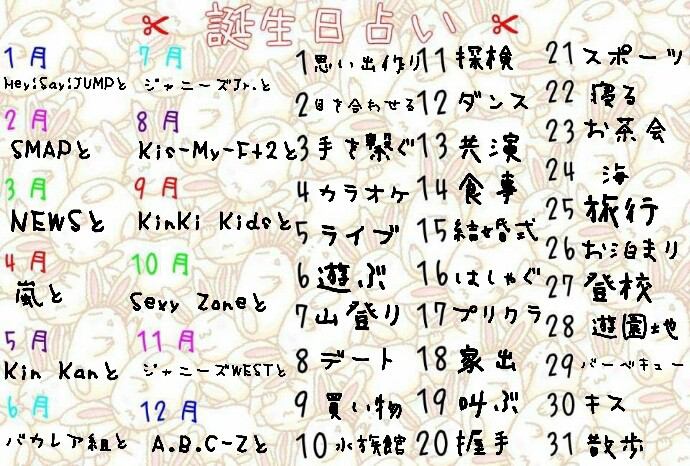 ✂ 誕生日占い ✂
1月
Hey!Say!JUMPと
2月
SMAPと
3月
NEWSと
4月
嵐と
5月
Kin Kanと
6月
バカレア組と
7月
ジャニーズJr.と
8月
Kis-My-Ft2と
9月
KinKi Kidsと
10月
Sexy Zoneと
11月
ジャニーズWESTと
12月
A.B.C-Zと
1 思い出作り
2 目を合わせる
3 手を繋ぐ
4 カラオケ
5 ライブ
6 遊ぶ
7 山登り
8 デート
9 買い物
10 水族館
11 探検
12 ダンス
13 共演
14 食事
15 結婚式
16 はしゃぐ
17 プリクラ
18 家出
19 叫ぶ
20 握手
21 スポーツ
22 寝る
23 お茶会
24 海
25 旅行
26 お泊まり
27 登校
28 遊園地
29 バーベキュー
30 キス
31 散歩